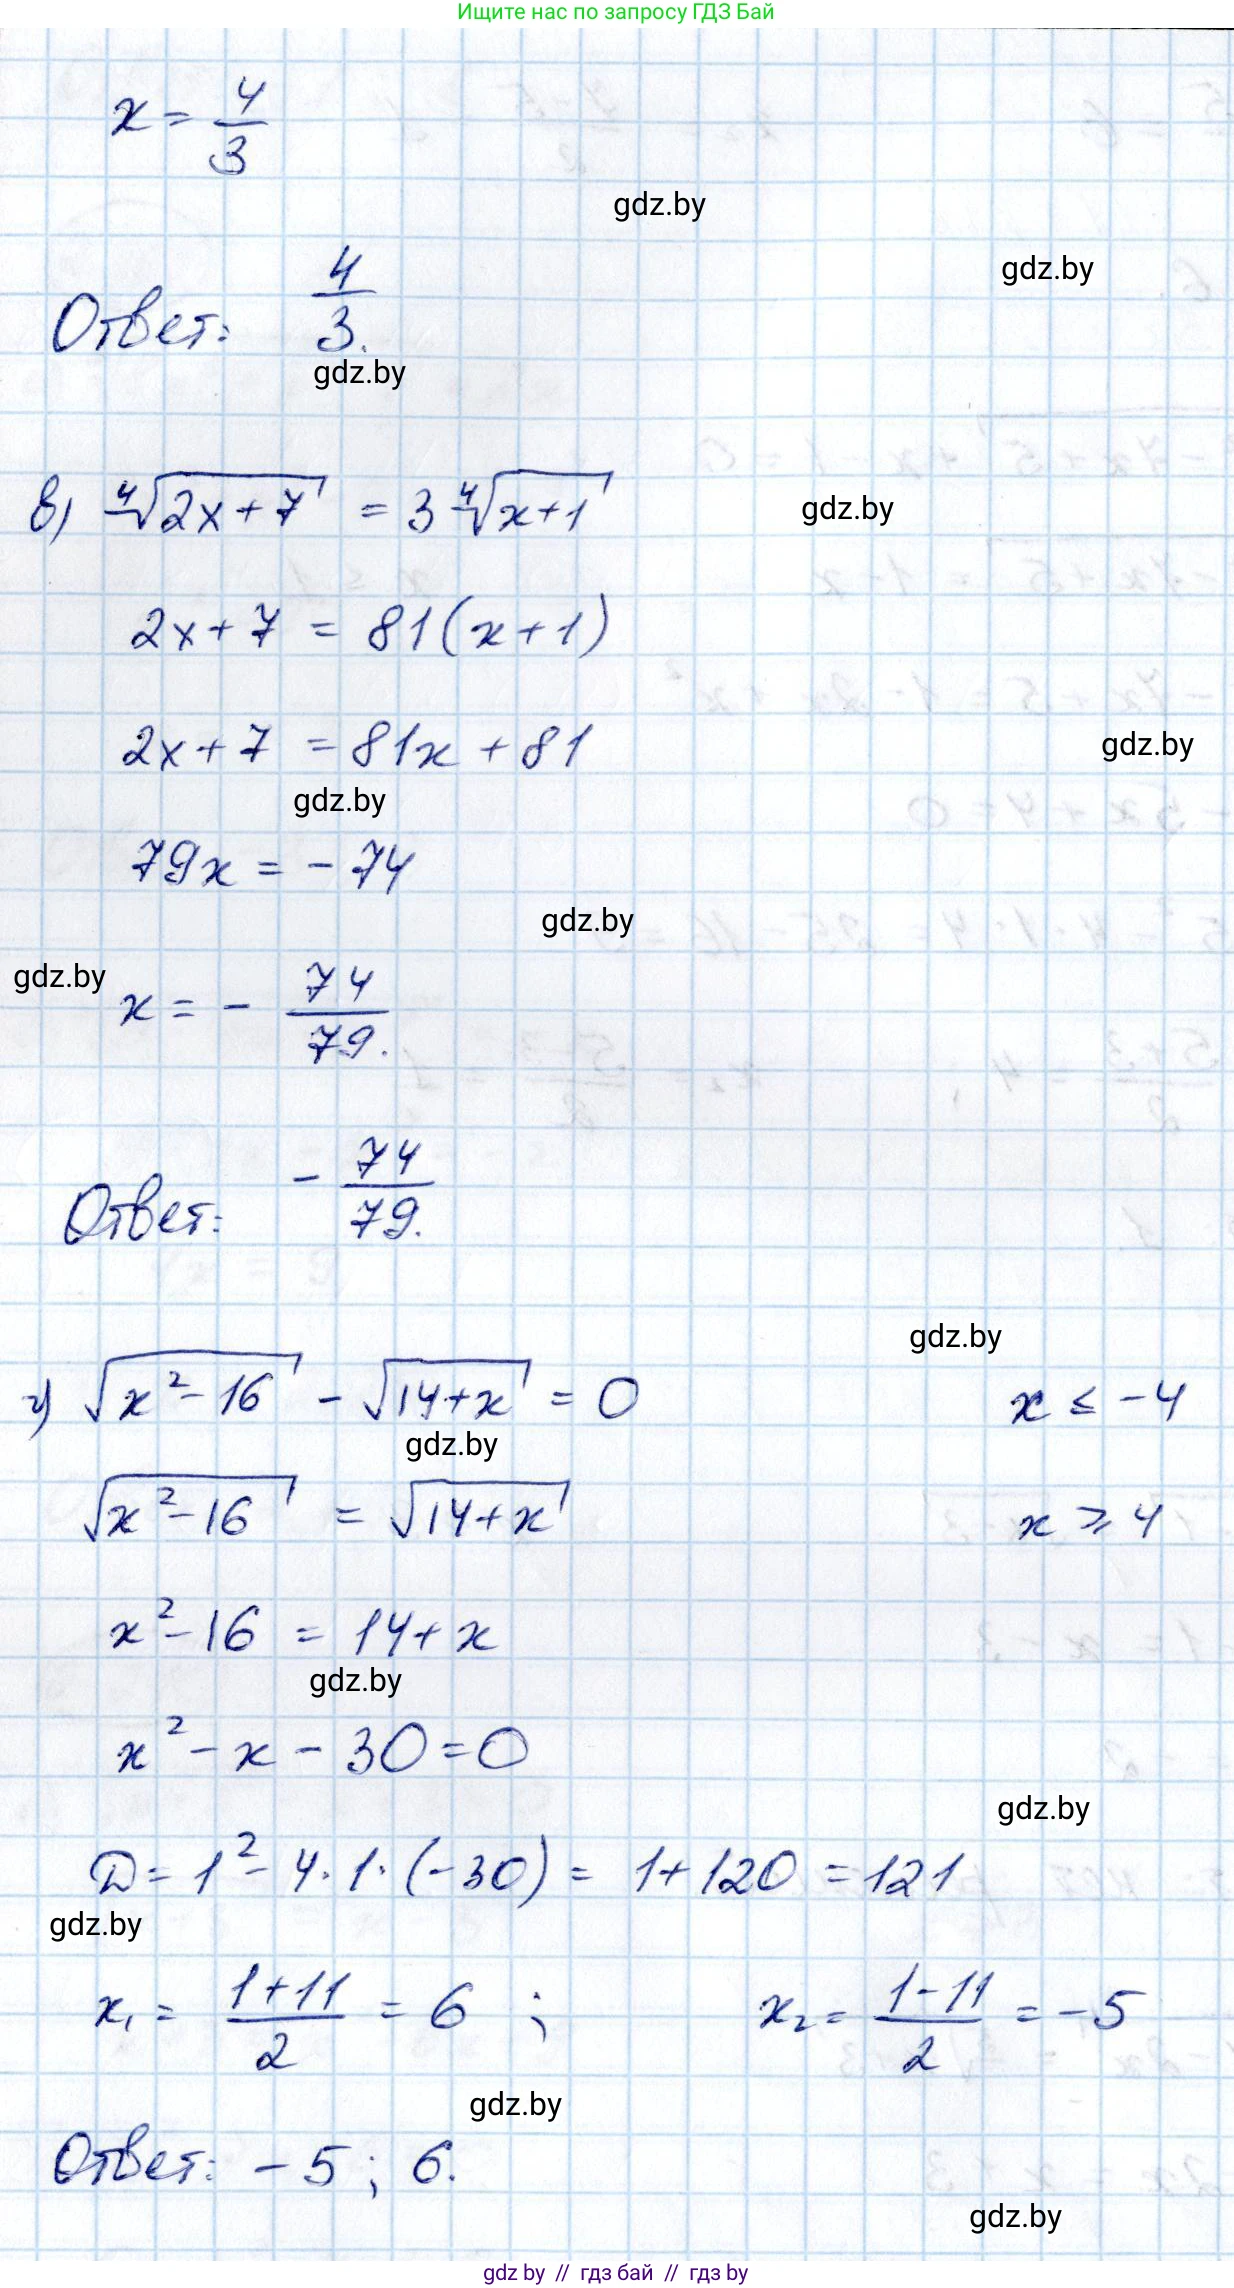 Ищите нас по запросу ГДЗ Бай
x = 4/3
gdz.by
gdz.by
Ответ: 4/3.
gdz.by
в) ⁴√(2x+7) = 3 ⁴√(x+1)
gdz.by
2x+7 = 81(x+1)
2x+7 = 81x + 81
gdz.by
gdz.by
79x = -74
gdz.by
gdz.by
x = - 74/79.
Ответ: - 74/79.
gdz.by
г) √(x²-16) - √(14+x) = 0 x ≤ -4
gdz.by
√(x²-16) = √(14+x) x ≥ 4
x²-16 = 14+x
gdz.by
x² - x - 30 = 0
gdz.by
D = 1² - 4·1·(-30) = 1+120 = 121
gdz.by
x₁ = (1+11)/2 = 6 ; x₂ = (1-11)/2 = -5
gdz.by
Ответ: -5; 6.
gdz.by
gdz by // гдз бай // gdz by